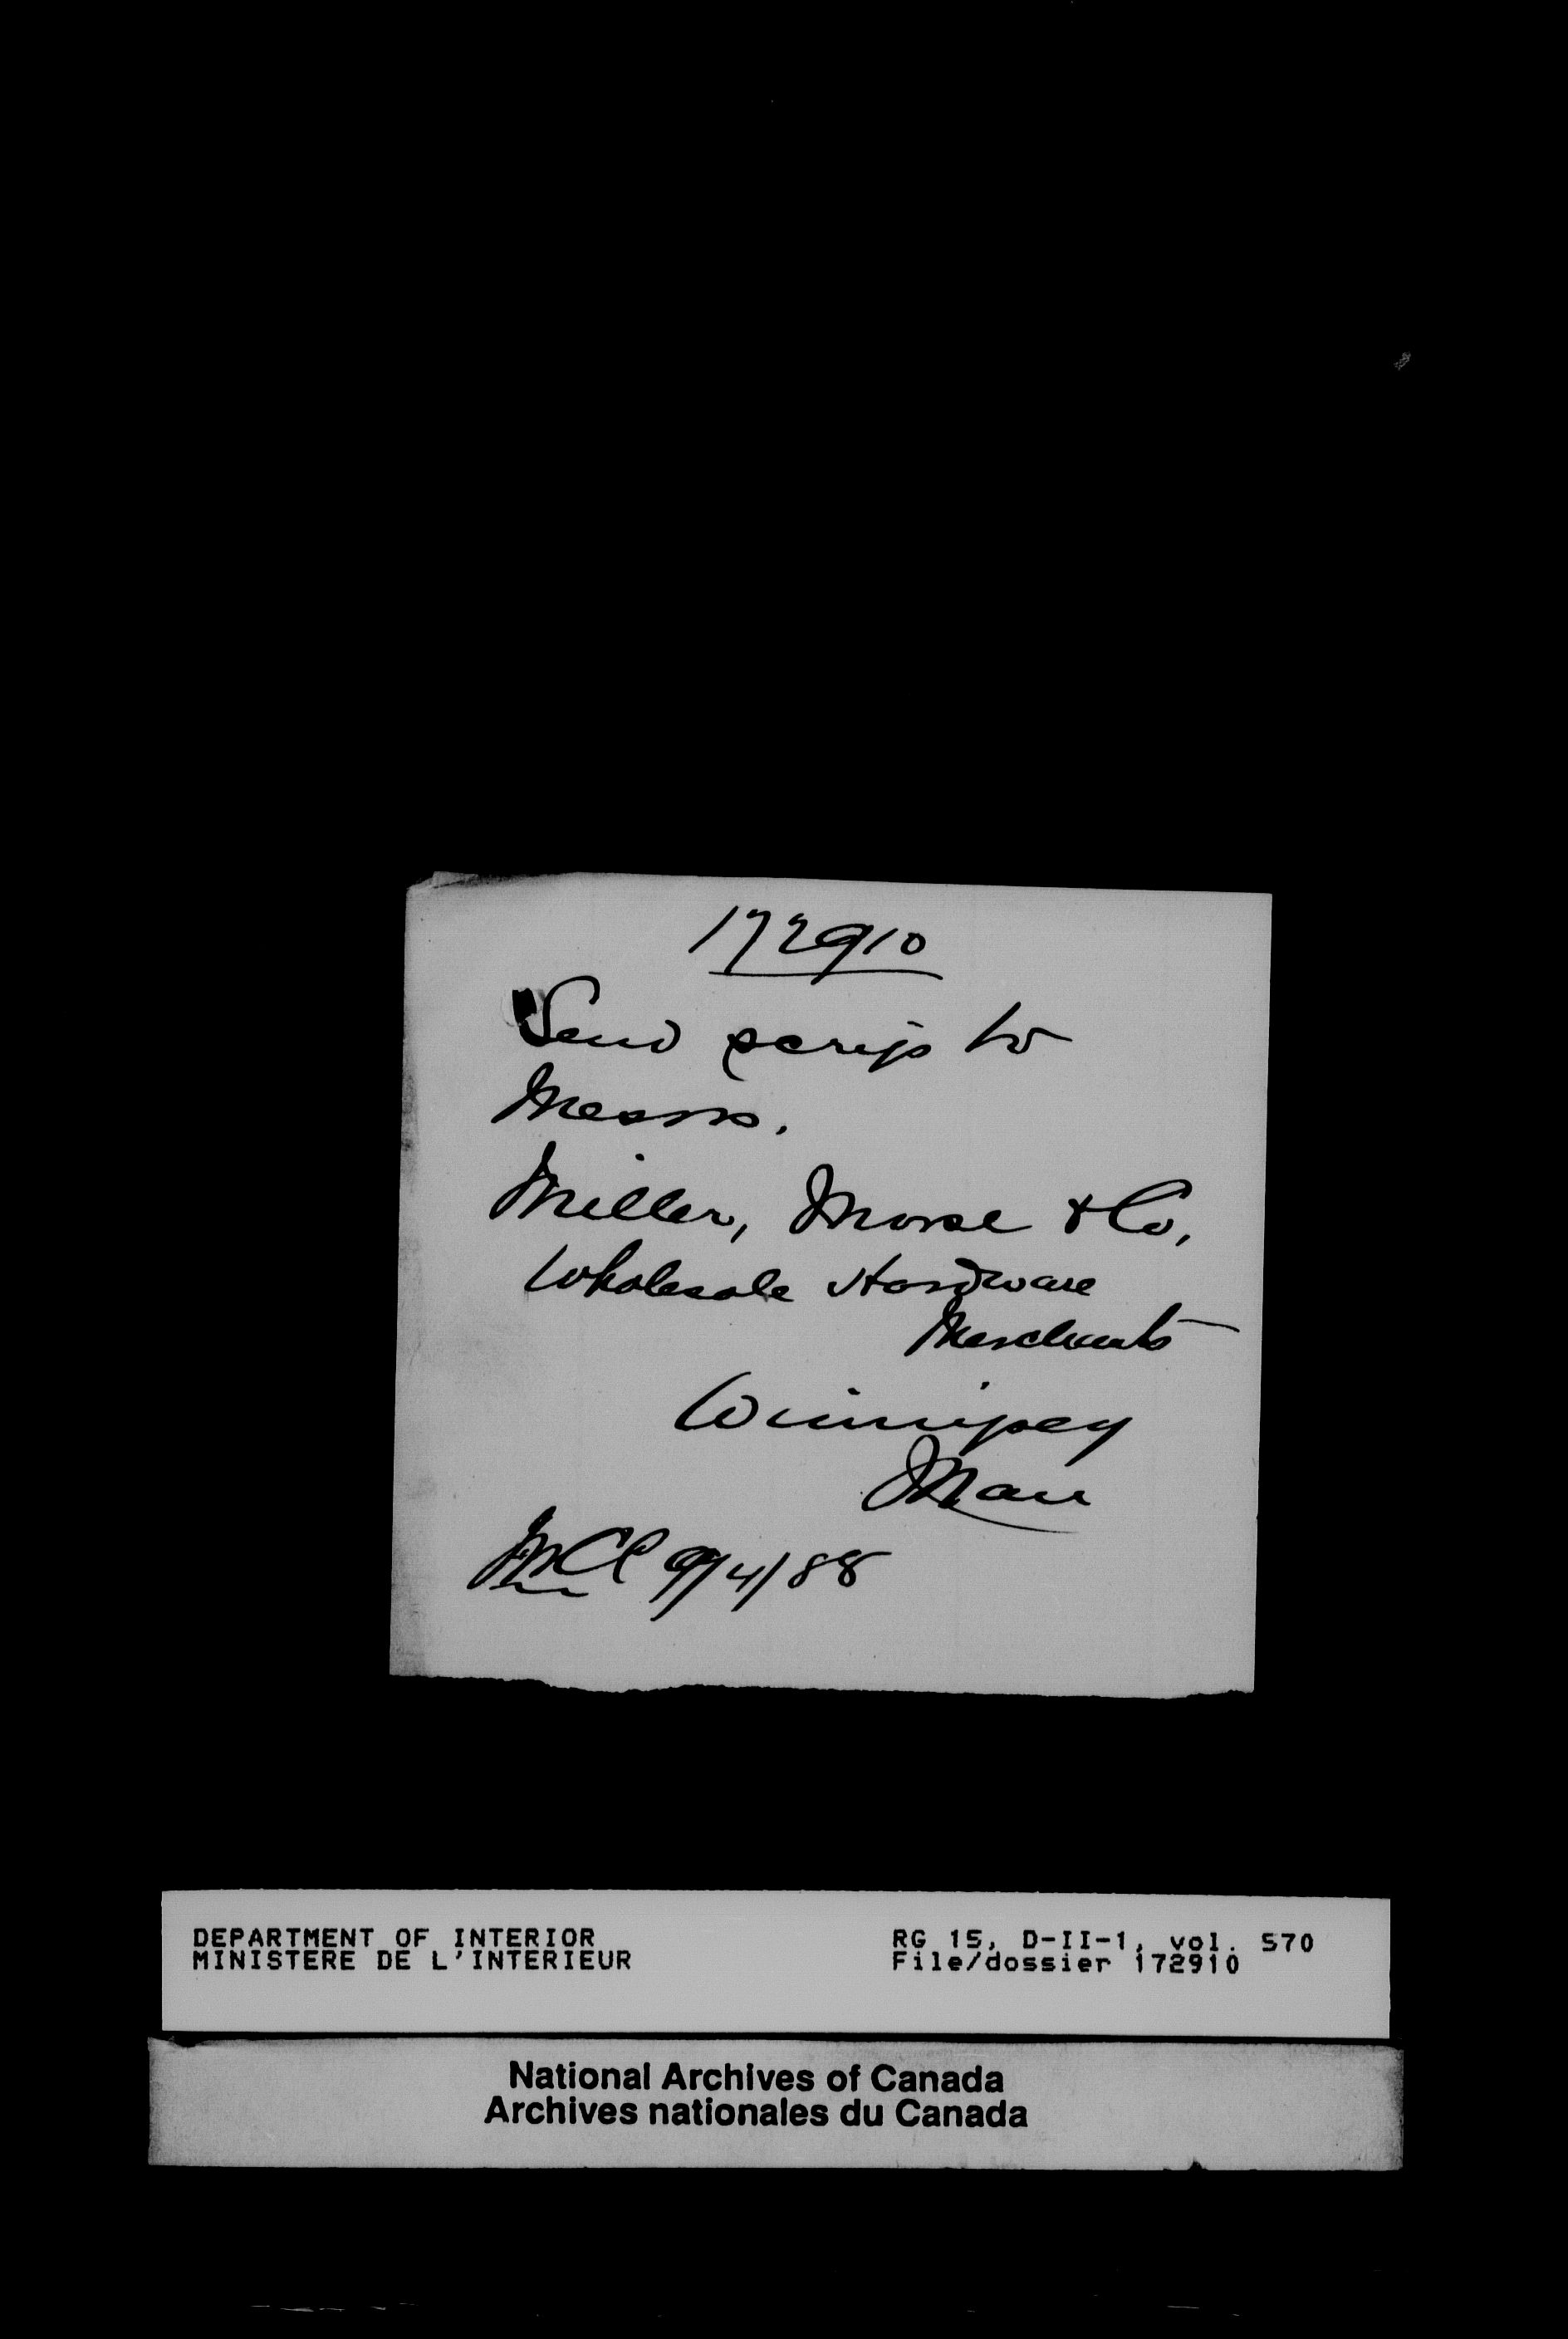 172910
Send scrip to
Messrs.
Miller, Morse & Co,
Wholesale Hardware
Merchants
Winnipeg
Man
9/4/88
DEPARTMENT OF INTERIOR
MINISTERE DE L'INTERIEUR
RG 15, D-II-1, vol. 570
File/dossier 172910
National Archives of Canada
Archives nationales du Canada